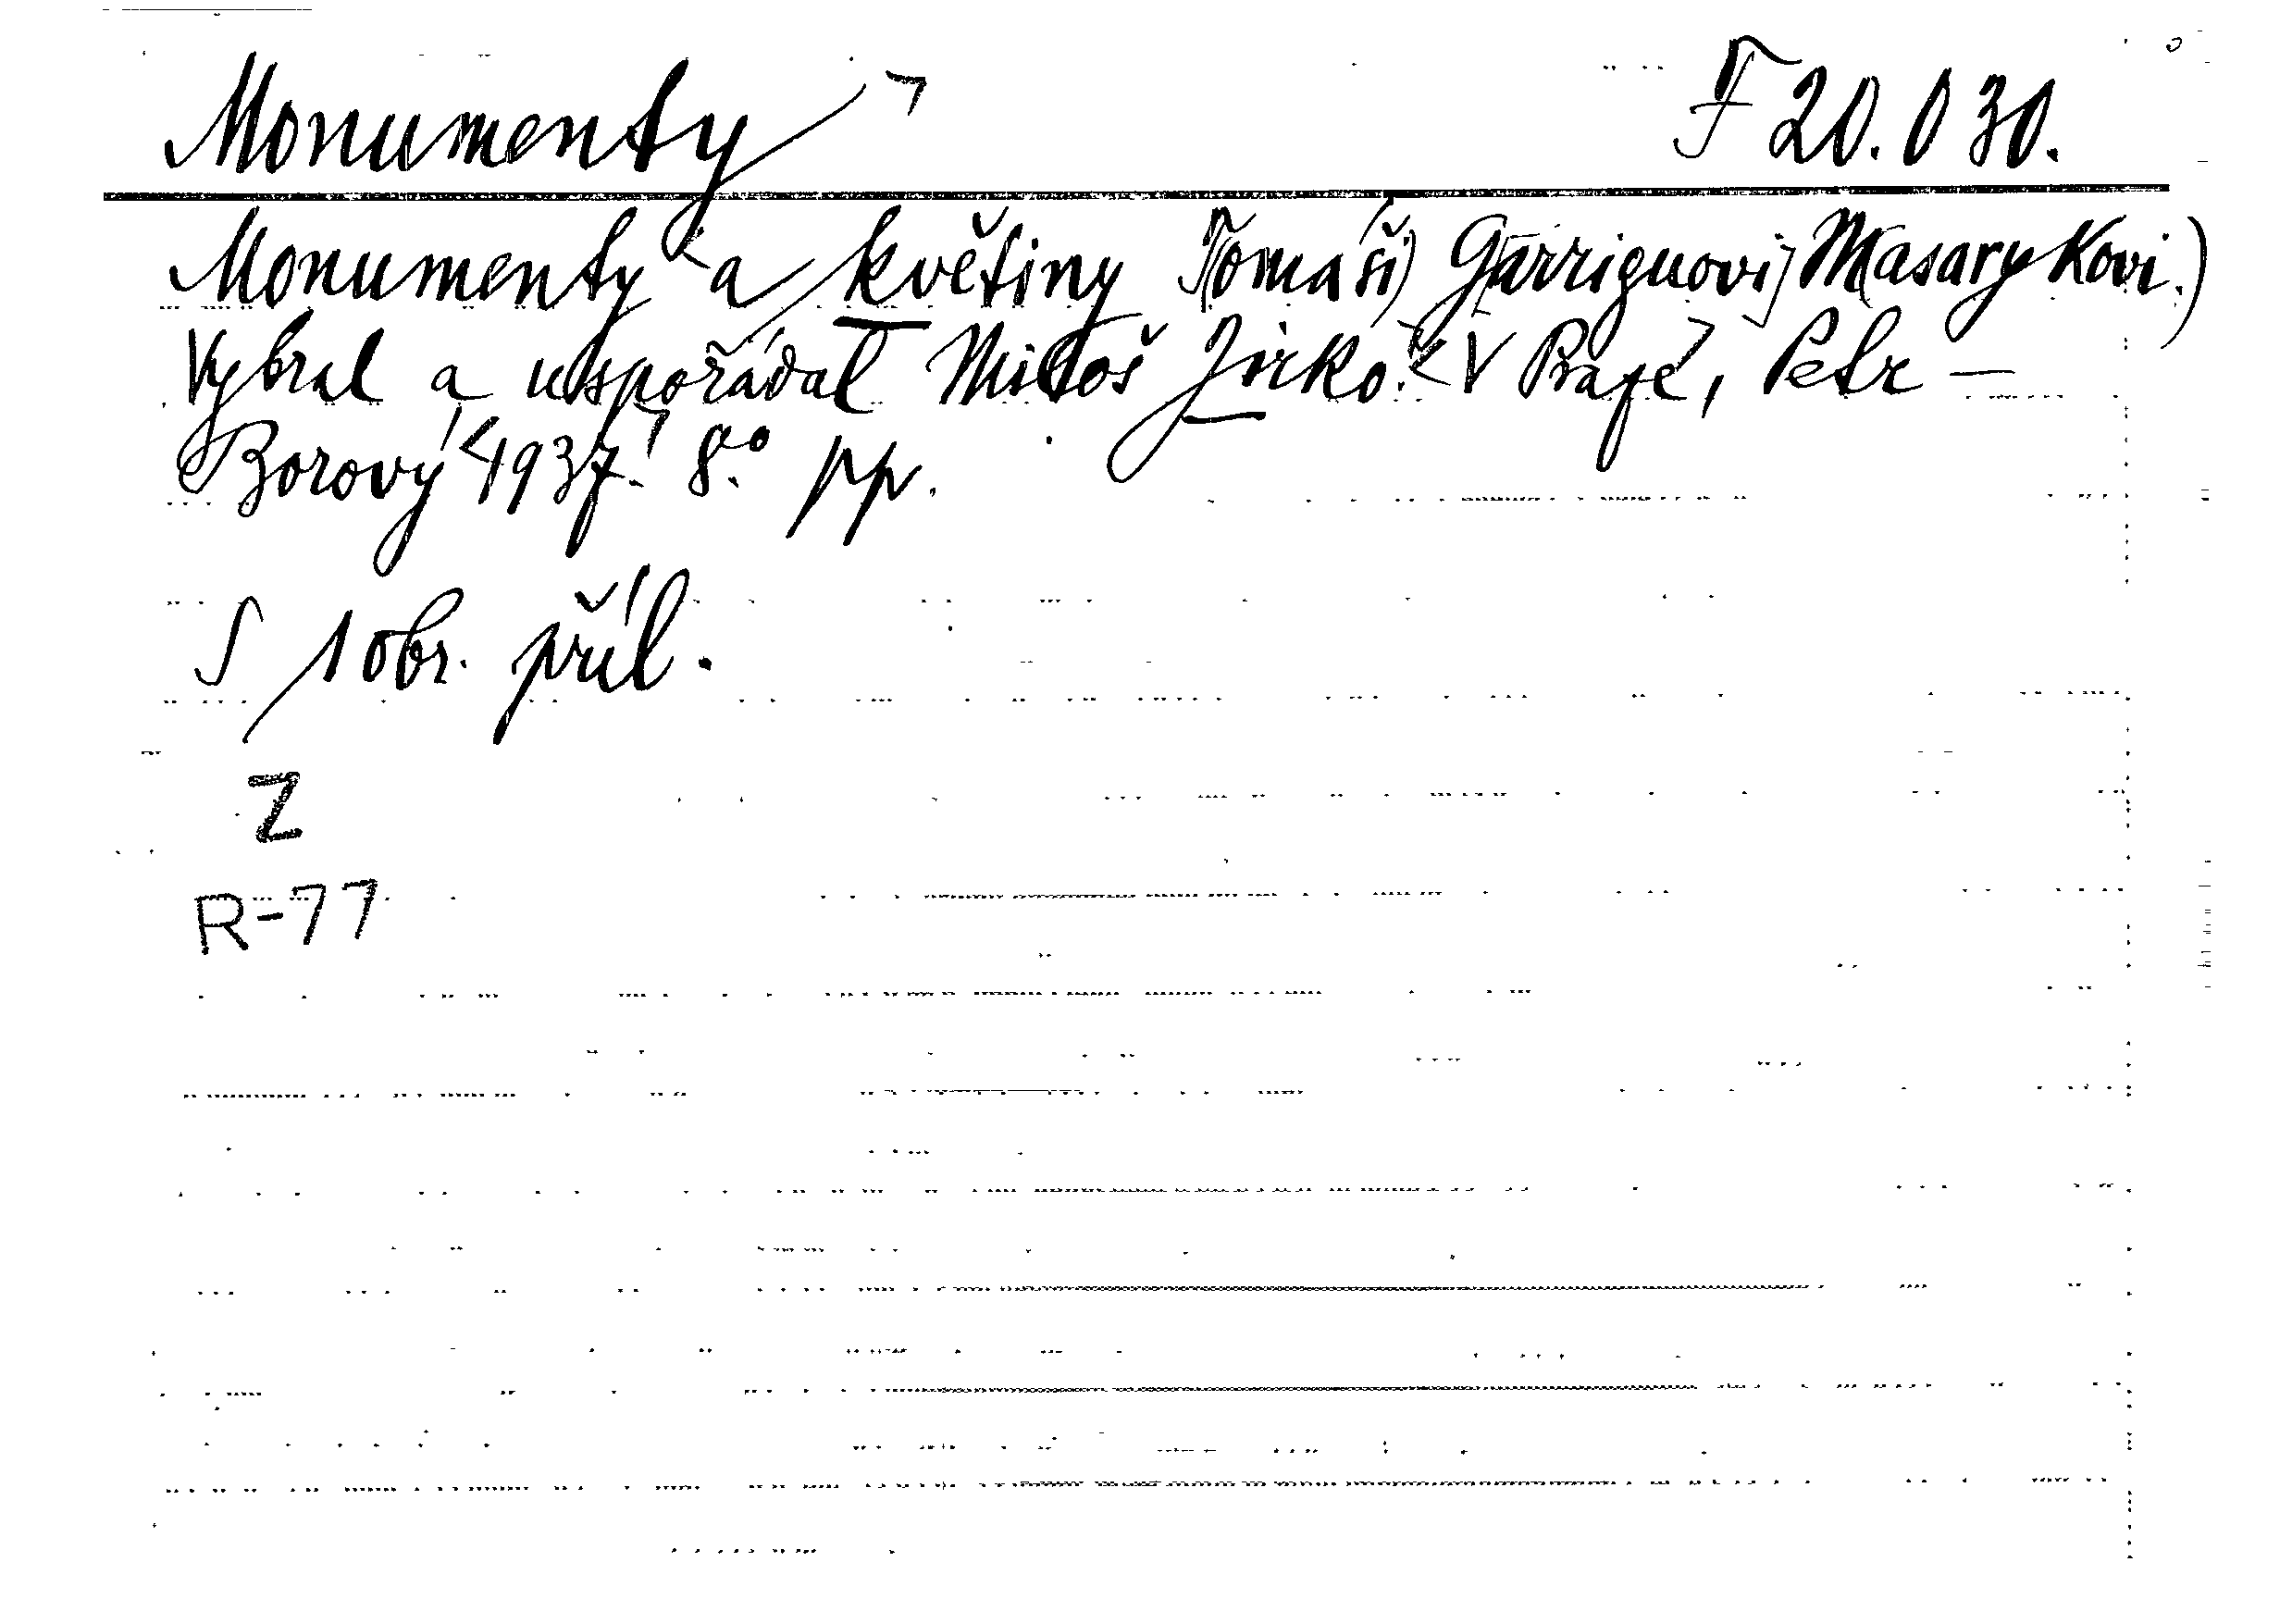 Monumenty F 20.030.
Monumenty a květiny Tomáši Garriguovi Masarykovi.
Vybral a uspořádal Miloš Jirko. V Praze, Petr —
Borový 1937. 8.° pp.
S 1 obr. příl.
Z
R-77